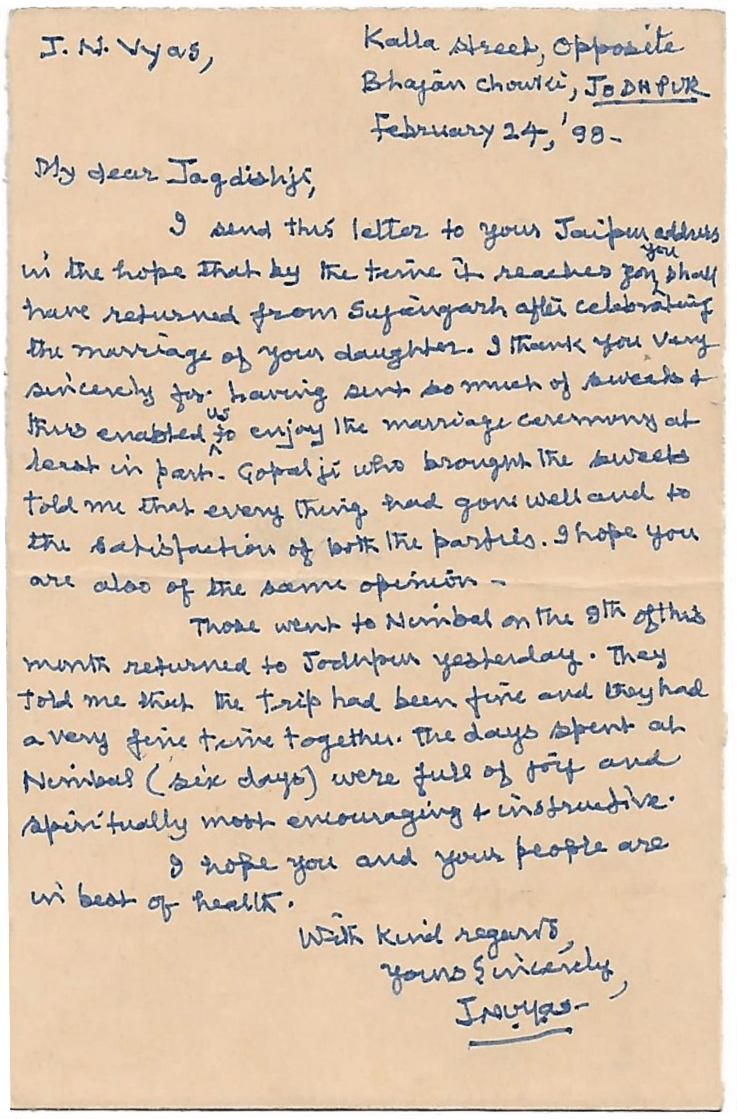 J. N. Vyas,
Kalla street, Opposite
Bhajan Chowki, JODHPUR
February 24, '98-
My dear Jagdishji,
I send this letter to your Jaipur address
in the hope that by the time it reaches you you shall
have returned from Sujangarh after celebrating
the marriage of your daughter. I thank you very
sincerely for having sent so much of sweets +
thus enabled us to enjoy the marriage ceremony at
least in part. Gopalji who brought the sweets
told me that every thing had gone well and to
the satisfaction of both the parties. I hope you
are also of the same opinion -
Those went to Nimbal on the 9th of this
month returned to Jodhpur yesterday. They
told me that the trip had been fine and they had
a very fine time together. The days spent at
Nimbal (six days) were full of joy and
spiritually most encouraging + instructive.
I hope you and your people are
in best of health.
With kind regards,
Yours Sincerely,
JNVyas-